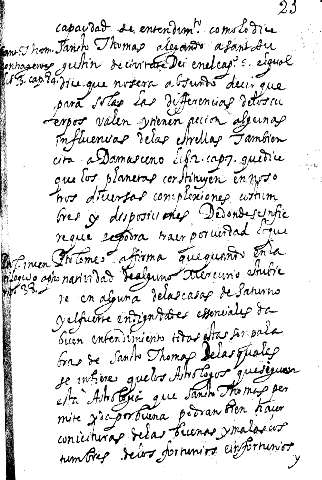 23
capacidad de entendimto. como lo dice
Santo Thomas alegando a santo Au
gustin de civitate Dei en el cap. 5. el qual
dice que no sera absurdo decir que
para solas las differencias de los cu
erpos valen y tienen accion algunas
influencias de las estrellas Tambien
cita a Damasceno cap. 7. que dice
que los planetas constituyen en noso
tros diversas complexiones costum
bres y disposiciones De donde se infie
re que se podra traer por verdad lo que
Ptolomeo affirma que quando en la
natividad de alguno Mercurio estubie
re en alguna de las casas de Saturno
y el fuerte en dignidades essenciales da
buen entendimiento todas estas son pala
bras de Santo Thomas De las quales
se infiere que los Astrologos que siguen
esta Astrologia que Santo Thomas per
mite por buena podran bien hacer
conjecturas de las buenas y malas cos
tumbres de los fortunios e infortunios
y